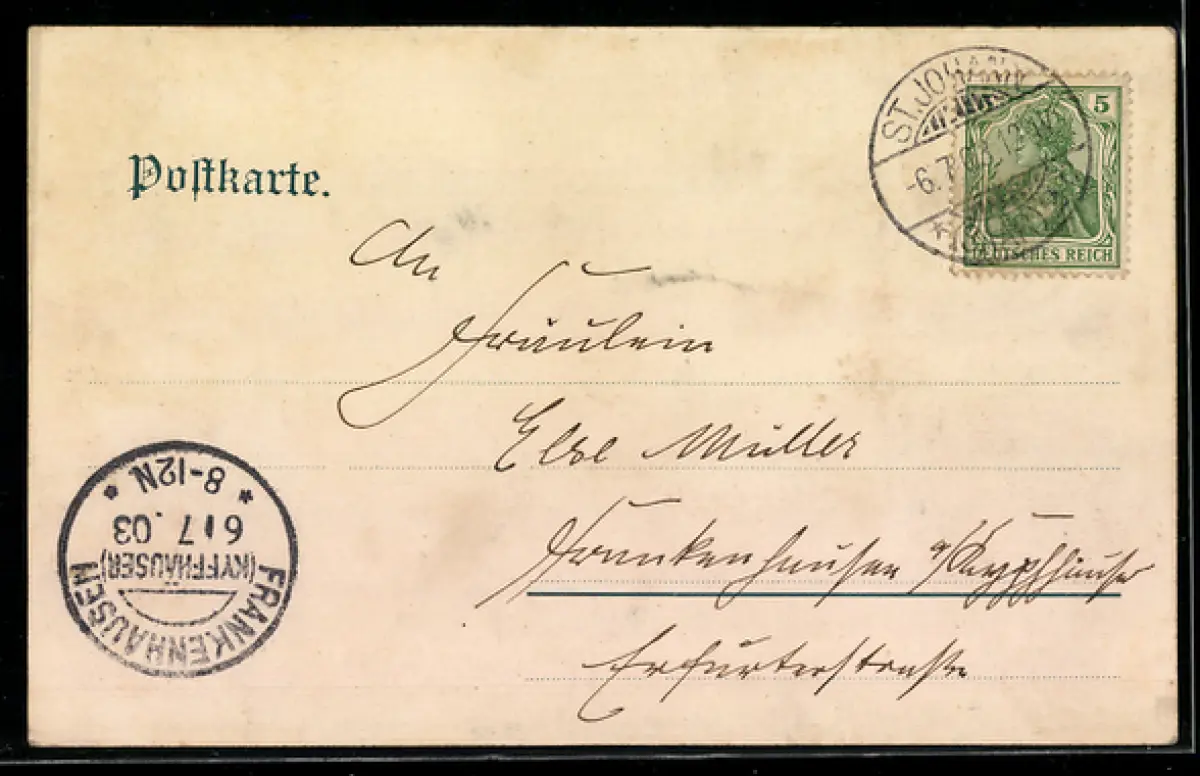 Postkarte.
ST. JOHANN
-6.7.03. 12
5
DEUTSCHES REICH
An
Fräulein
Else Müller
Frankenhausen a/Kyffhäuser
Erfurterstraße
FRANKENHAUSEN
(KYFFHÄUSER)
6 7. 03
* 8-12N *